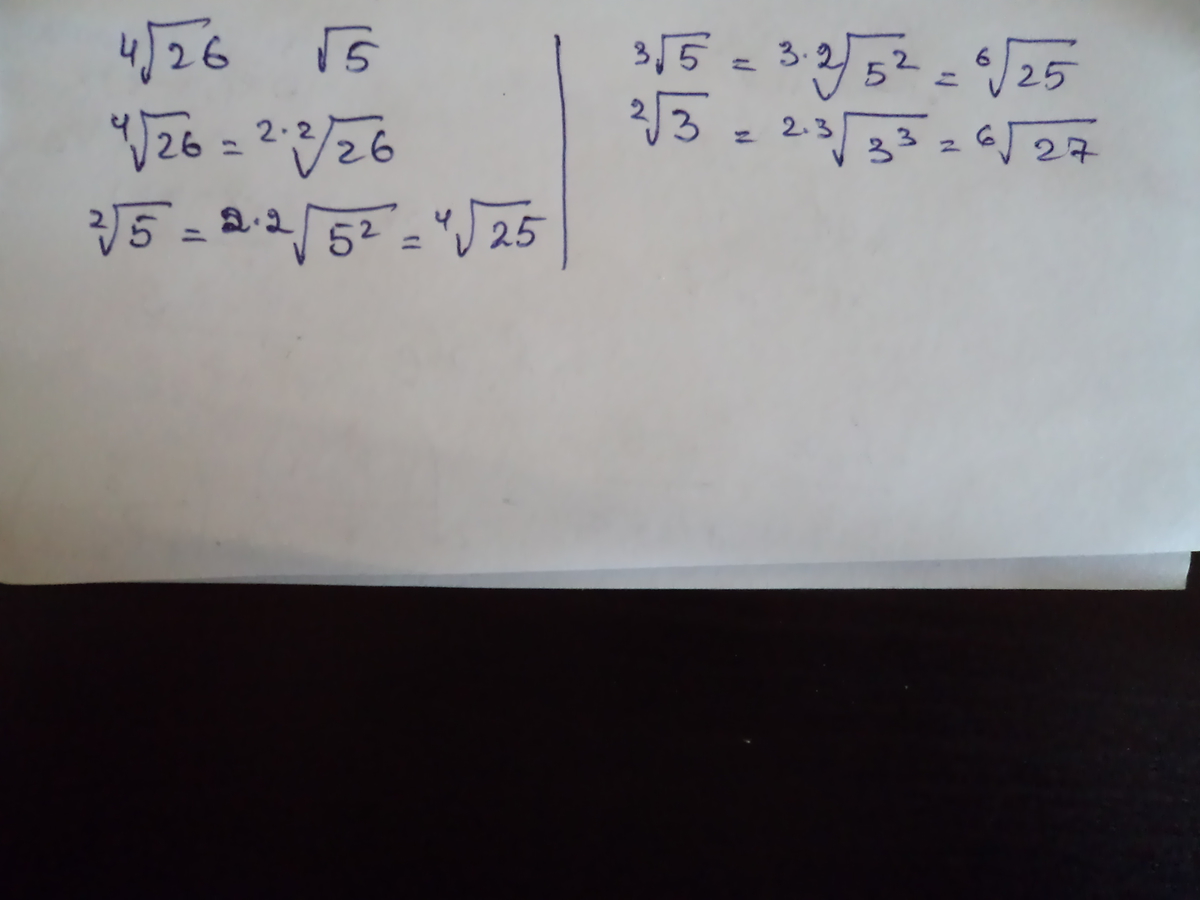 ⁴√26 √5
⁴√26 = ²·²√26
²√5 = ²·²√5² = ⁴√25
³√5 = ³·²√5² = ⁶√25
²√3 = ²·³√3³ = ⁶√27